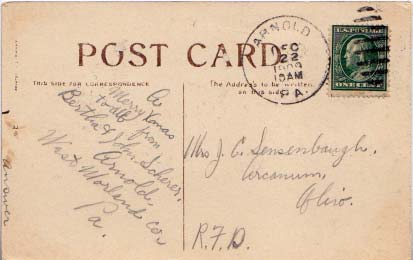 POST CARD
THIS SIDE FOR CORRESPONDENCE
The Address to be written
on this side.
ARNOLD
DEC
22
10AM
PA.
U.S. POSTAGE
ONE CENT
A
Merry Xmas
to all from
Bertha & John Scherer,
Arnold,
West Moreland co,
Pa.
Mrs J. C. Sensenbaugh,
Arcanum,
Ohio.
R.F.D.